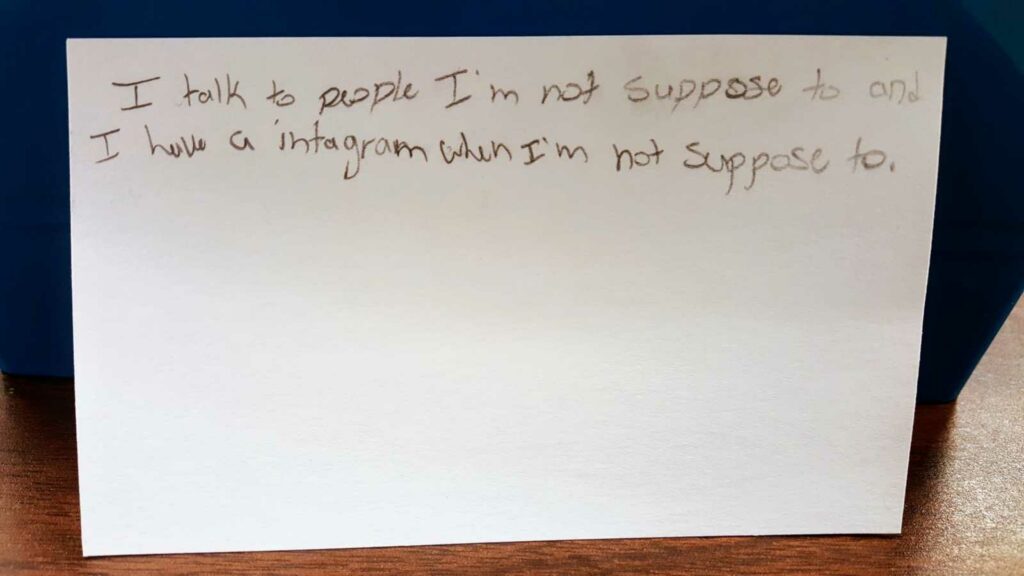 I talk to people I'm not suppose to and
I have a intagram when I'm not suppose to.